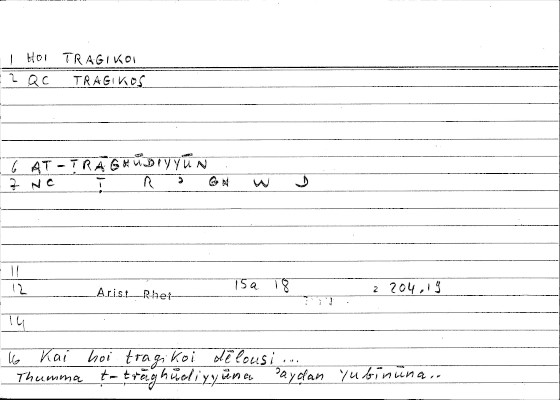 1 HOI TRAGIKOI
2 QC TRAGIKOS
6 AṬ-ṬRĀGHŪDIYYŪN
7 NC Ṭ R ʾ GH W D
11
12 Arist Rhet 15a 18 2 204.19
14
16 Kai hoi tragikoi dēlousi ...
Thumma ṭ-ṭrāghūdiyyūna ʾayḍan yubīnūna..